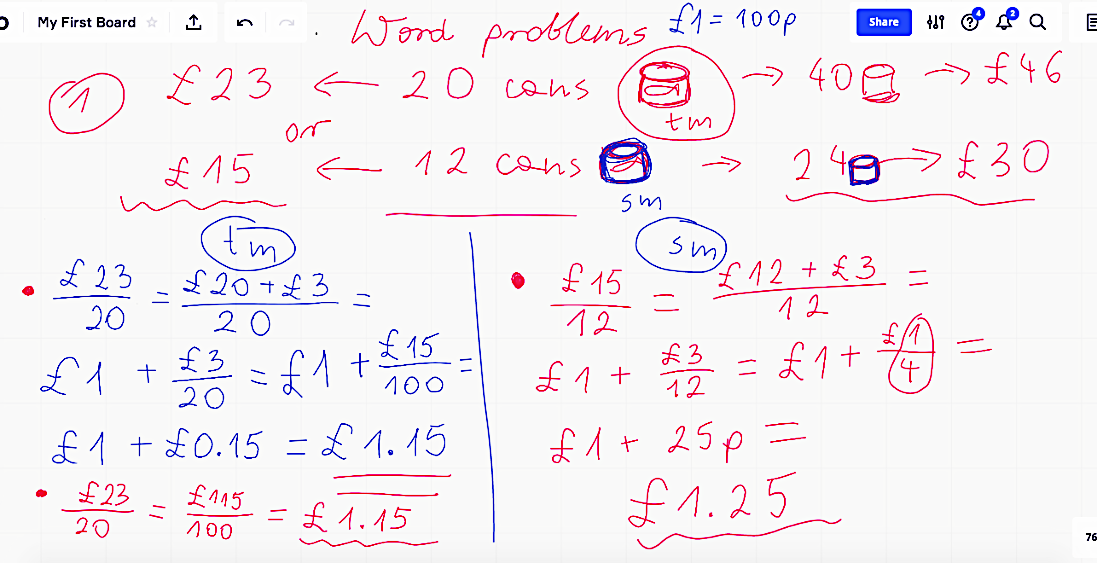 My First Board
Share
4
2
Word problems £1 = 100p
1 £23 ← 20 cans tm → 40 → £46
or
£15 ← 12 cans sm → 24 → £30
tm
£23/20 = £20 + £3/20 =
£1 + £3/20 = £1 + £15/100 =
£1 + £0.15 = £1.15
£23/20 = £115/100 = £1.15
sm
£15/12 = £12 + £3/12 =
£1 + £3/12 = £1 + £1/4 =
£1 + 25p =
£1.25
76